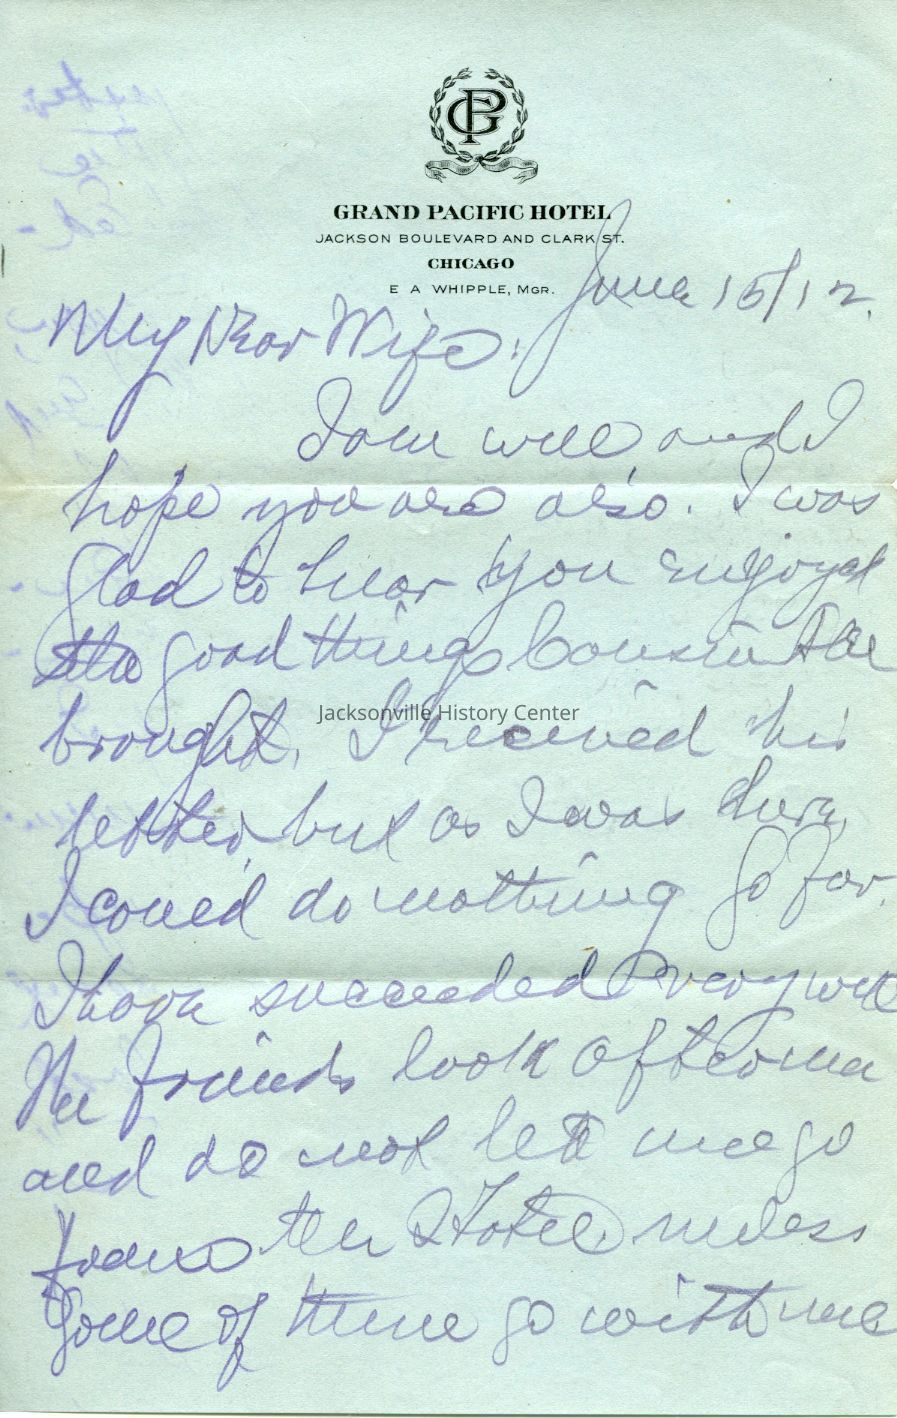 GP
GRAND PACIFIC HOTEL
JACKSON BOULEVARD AND CLARK ST.
CHICAGO
E A WHIPPLE, MGR.
June 15/12.
My Dear Wife:
I am well and I
hope you are also. I was
glad to hear you enjoyed
the good things Cousin
brought. I received his
letter, but as I was here,
I could do nothing So far.
I have succeeded very well
The friends look after me
and do not let me go
from the Hotel unless
Some of them go with me
Jacksonville History Center